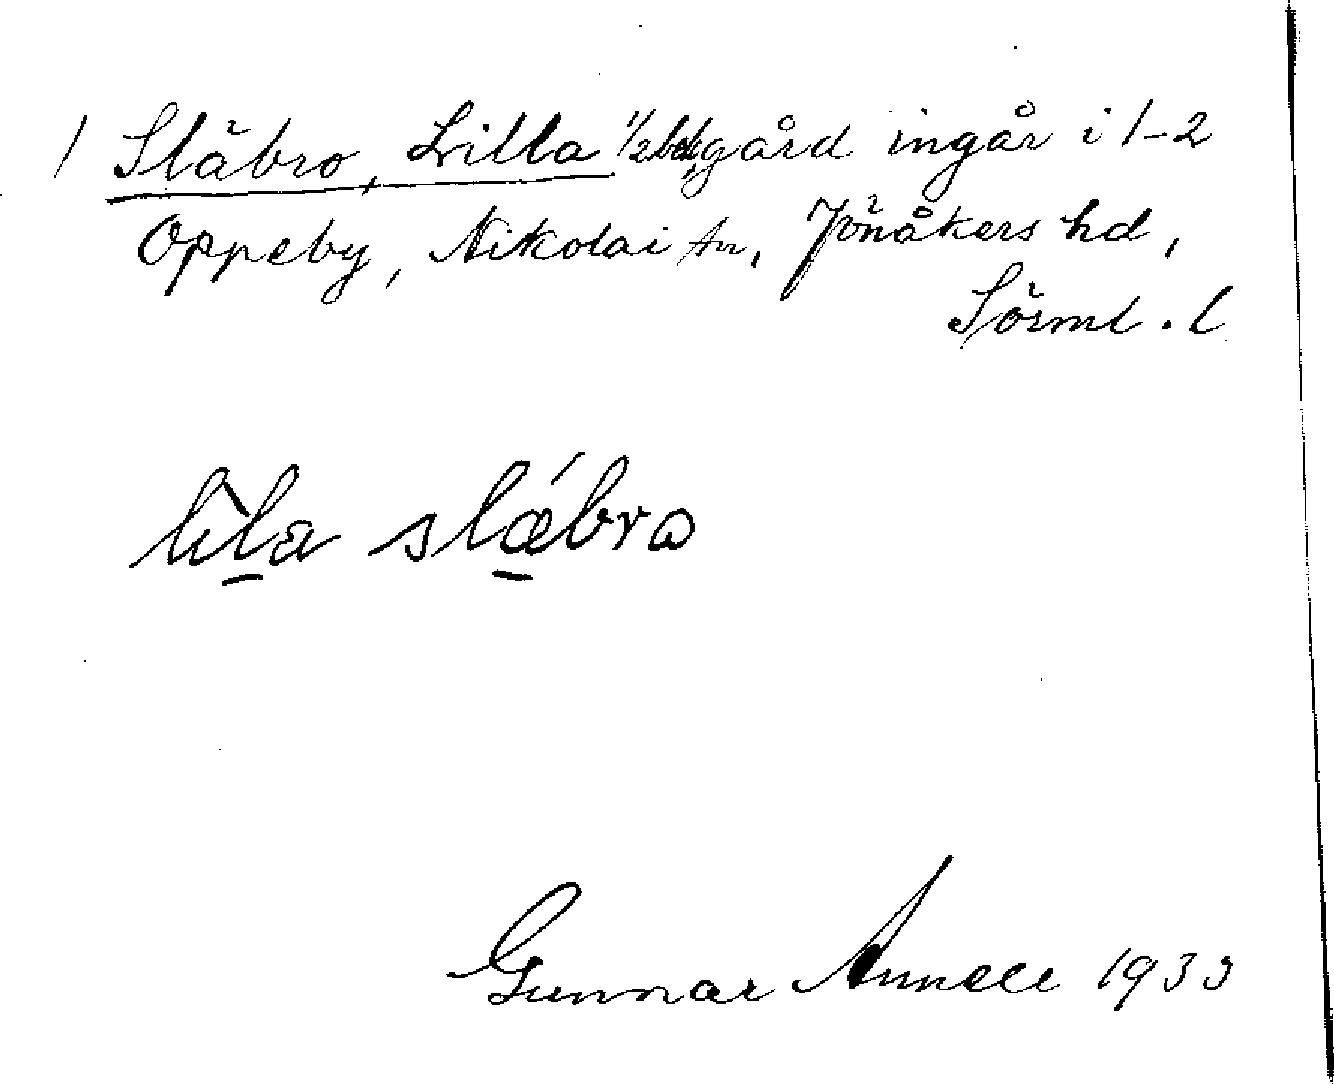 1 Släbro, Lilla 1/2 gård ingår i 1-2
Oppeby, Nikolai sn, Jönåkers hd,
Sörml. l
lìla slǽbro
Gunnar Annell 1933